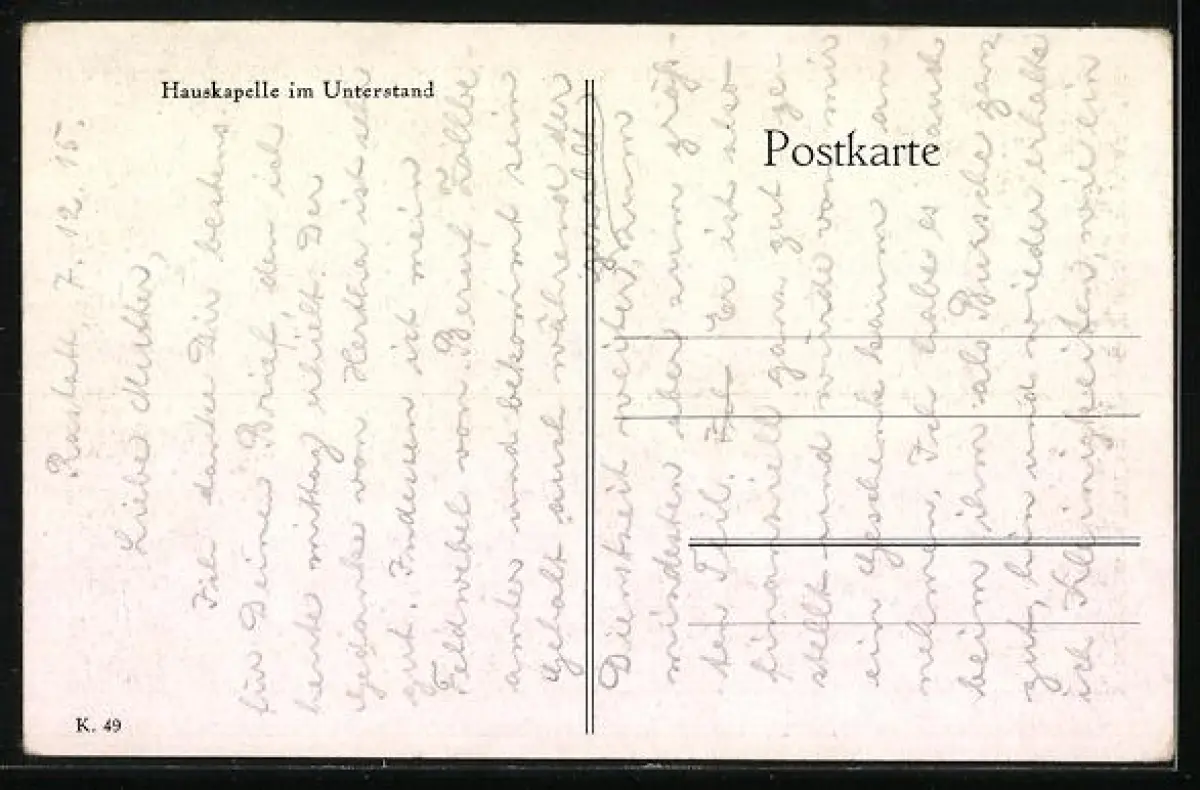 Hauskapelle im Unterstand
Postkarte
K. 49
Rastatt, 7. 12. 15.
Liebe Mutter,
Ich danke Dir bestens
für Deinen Brief, den ich
heute mittag erhielt. Der
Gedanke von Hertha ist sehr
gut. Indessen ist mein
Feldwebel von Beruf Zollbe-
amter und bekommt sein
Gehalt auch während der
Dienstzeit weiter, zum
gezahlt
mindesten aber zum größ-
ten Teil. Er ist also
finanziell ganz gut ge-
stellt und würde von mir
ein Geschenk kaum an-
nehmen. Ich habe es auch
beim ihm als Bursche ganz
gut, hin und wieder erhalte
ich Kleinigkeiten, wie ein